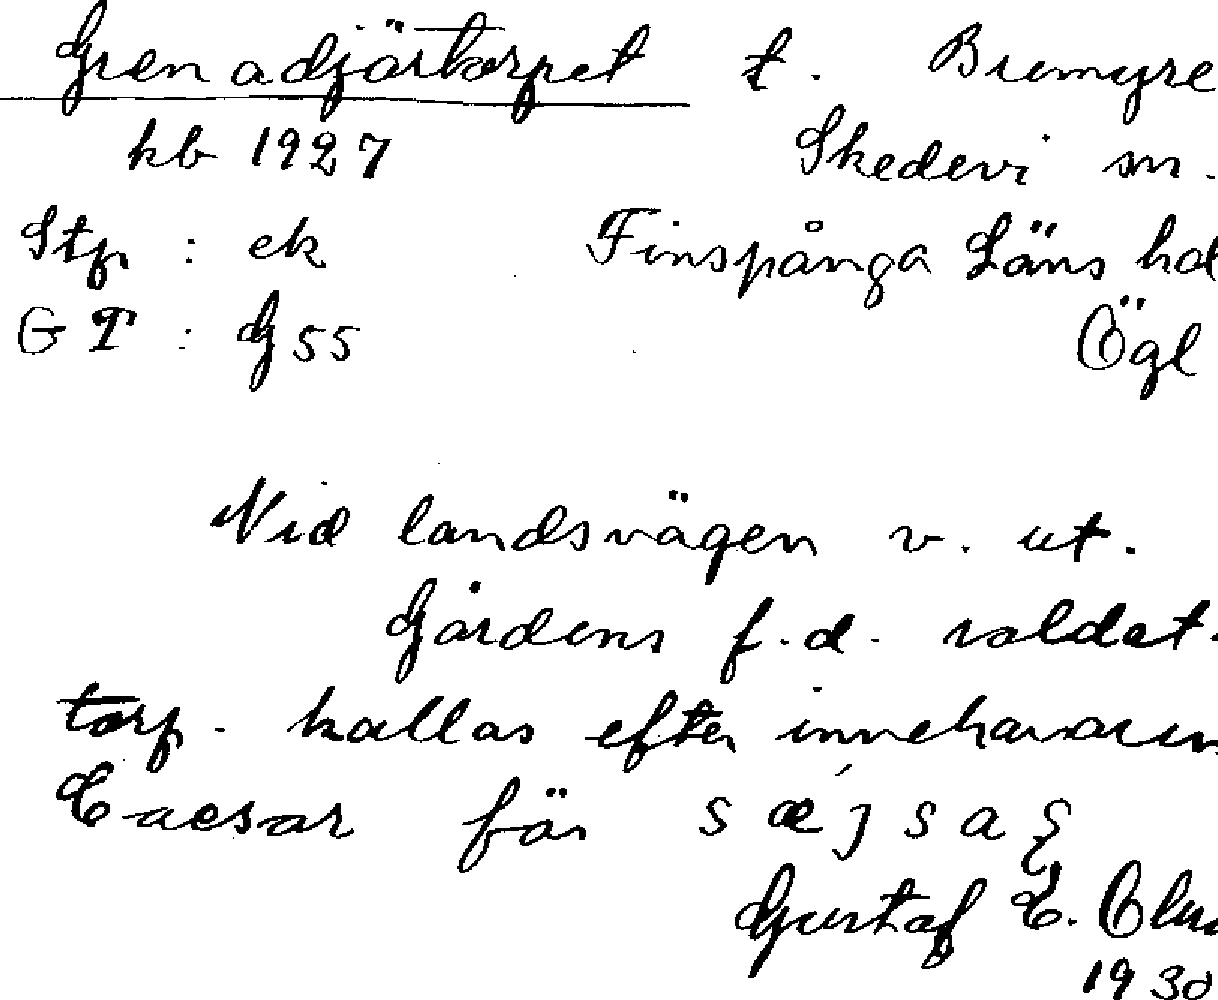 Grenadjärtorpet t. Bremyre
kb 1927 Skedevi sn.
Stfr : ek Finspånga Läns hd
GT : G55 Ögl
Vid landsvägen v. ut.
Gårdens f.d. soldat-
torp. kallas efter innehavaren
Caesar för
Gustaf E.
1930